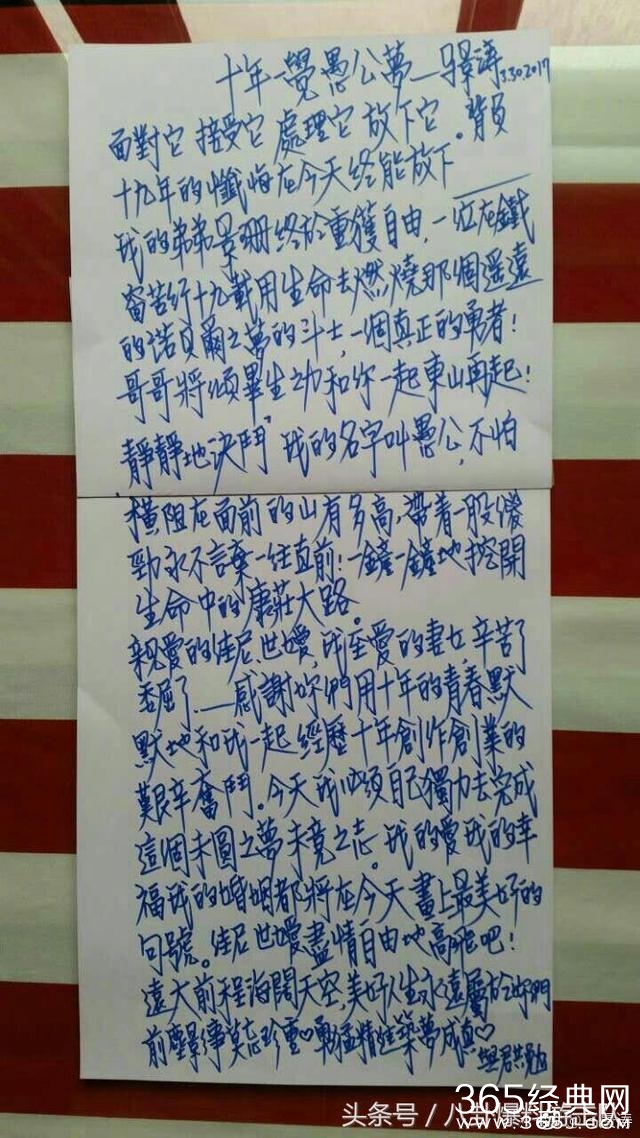 十年一覺愚公夢—馬景濤 3.30.2017
面對它 接受它 處理它 放下它。背負
十九年的懺悔在今天終能放下——
我的弟弟景珊終於重獲自由,一位在鐵
窗苦行十九載用生命去燃燒那個遥遠
的諾貝爾之夢的斗士,一個真正的勇者!
哥哥將傾畢生之功和你一起東山再起!
靜靜地決鬥"我的名字叫愚公,不怕
橫阻在面前的山有多高,帶着一股傻
勁永不言棄一往直前!一鏟一鏟地挖開
生命中的康莊大路。
親愛的佳尼、世嬡,我至愛的妻女,辛苦了
委屈了——感謝妳們用十年的青春默
默地和我一起經歷十年創作創業的
艱辛奮鬥。今天我必須自己獨力去完成
這個未圓之夢未竟之志。我的愛我的幸
福我的婚姻都將在今天畫上最美好的
句號。佳尼世嬡盡情自由地高飛吧!
遠大前程海闊天空,美好人生永遠屬於妳們
前塵影事莫忘珍重♡勇猛精進築夢成真♡
與君共勉
头条号/八卦爆料婉玉队
365经典网
www.365.com